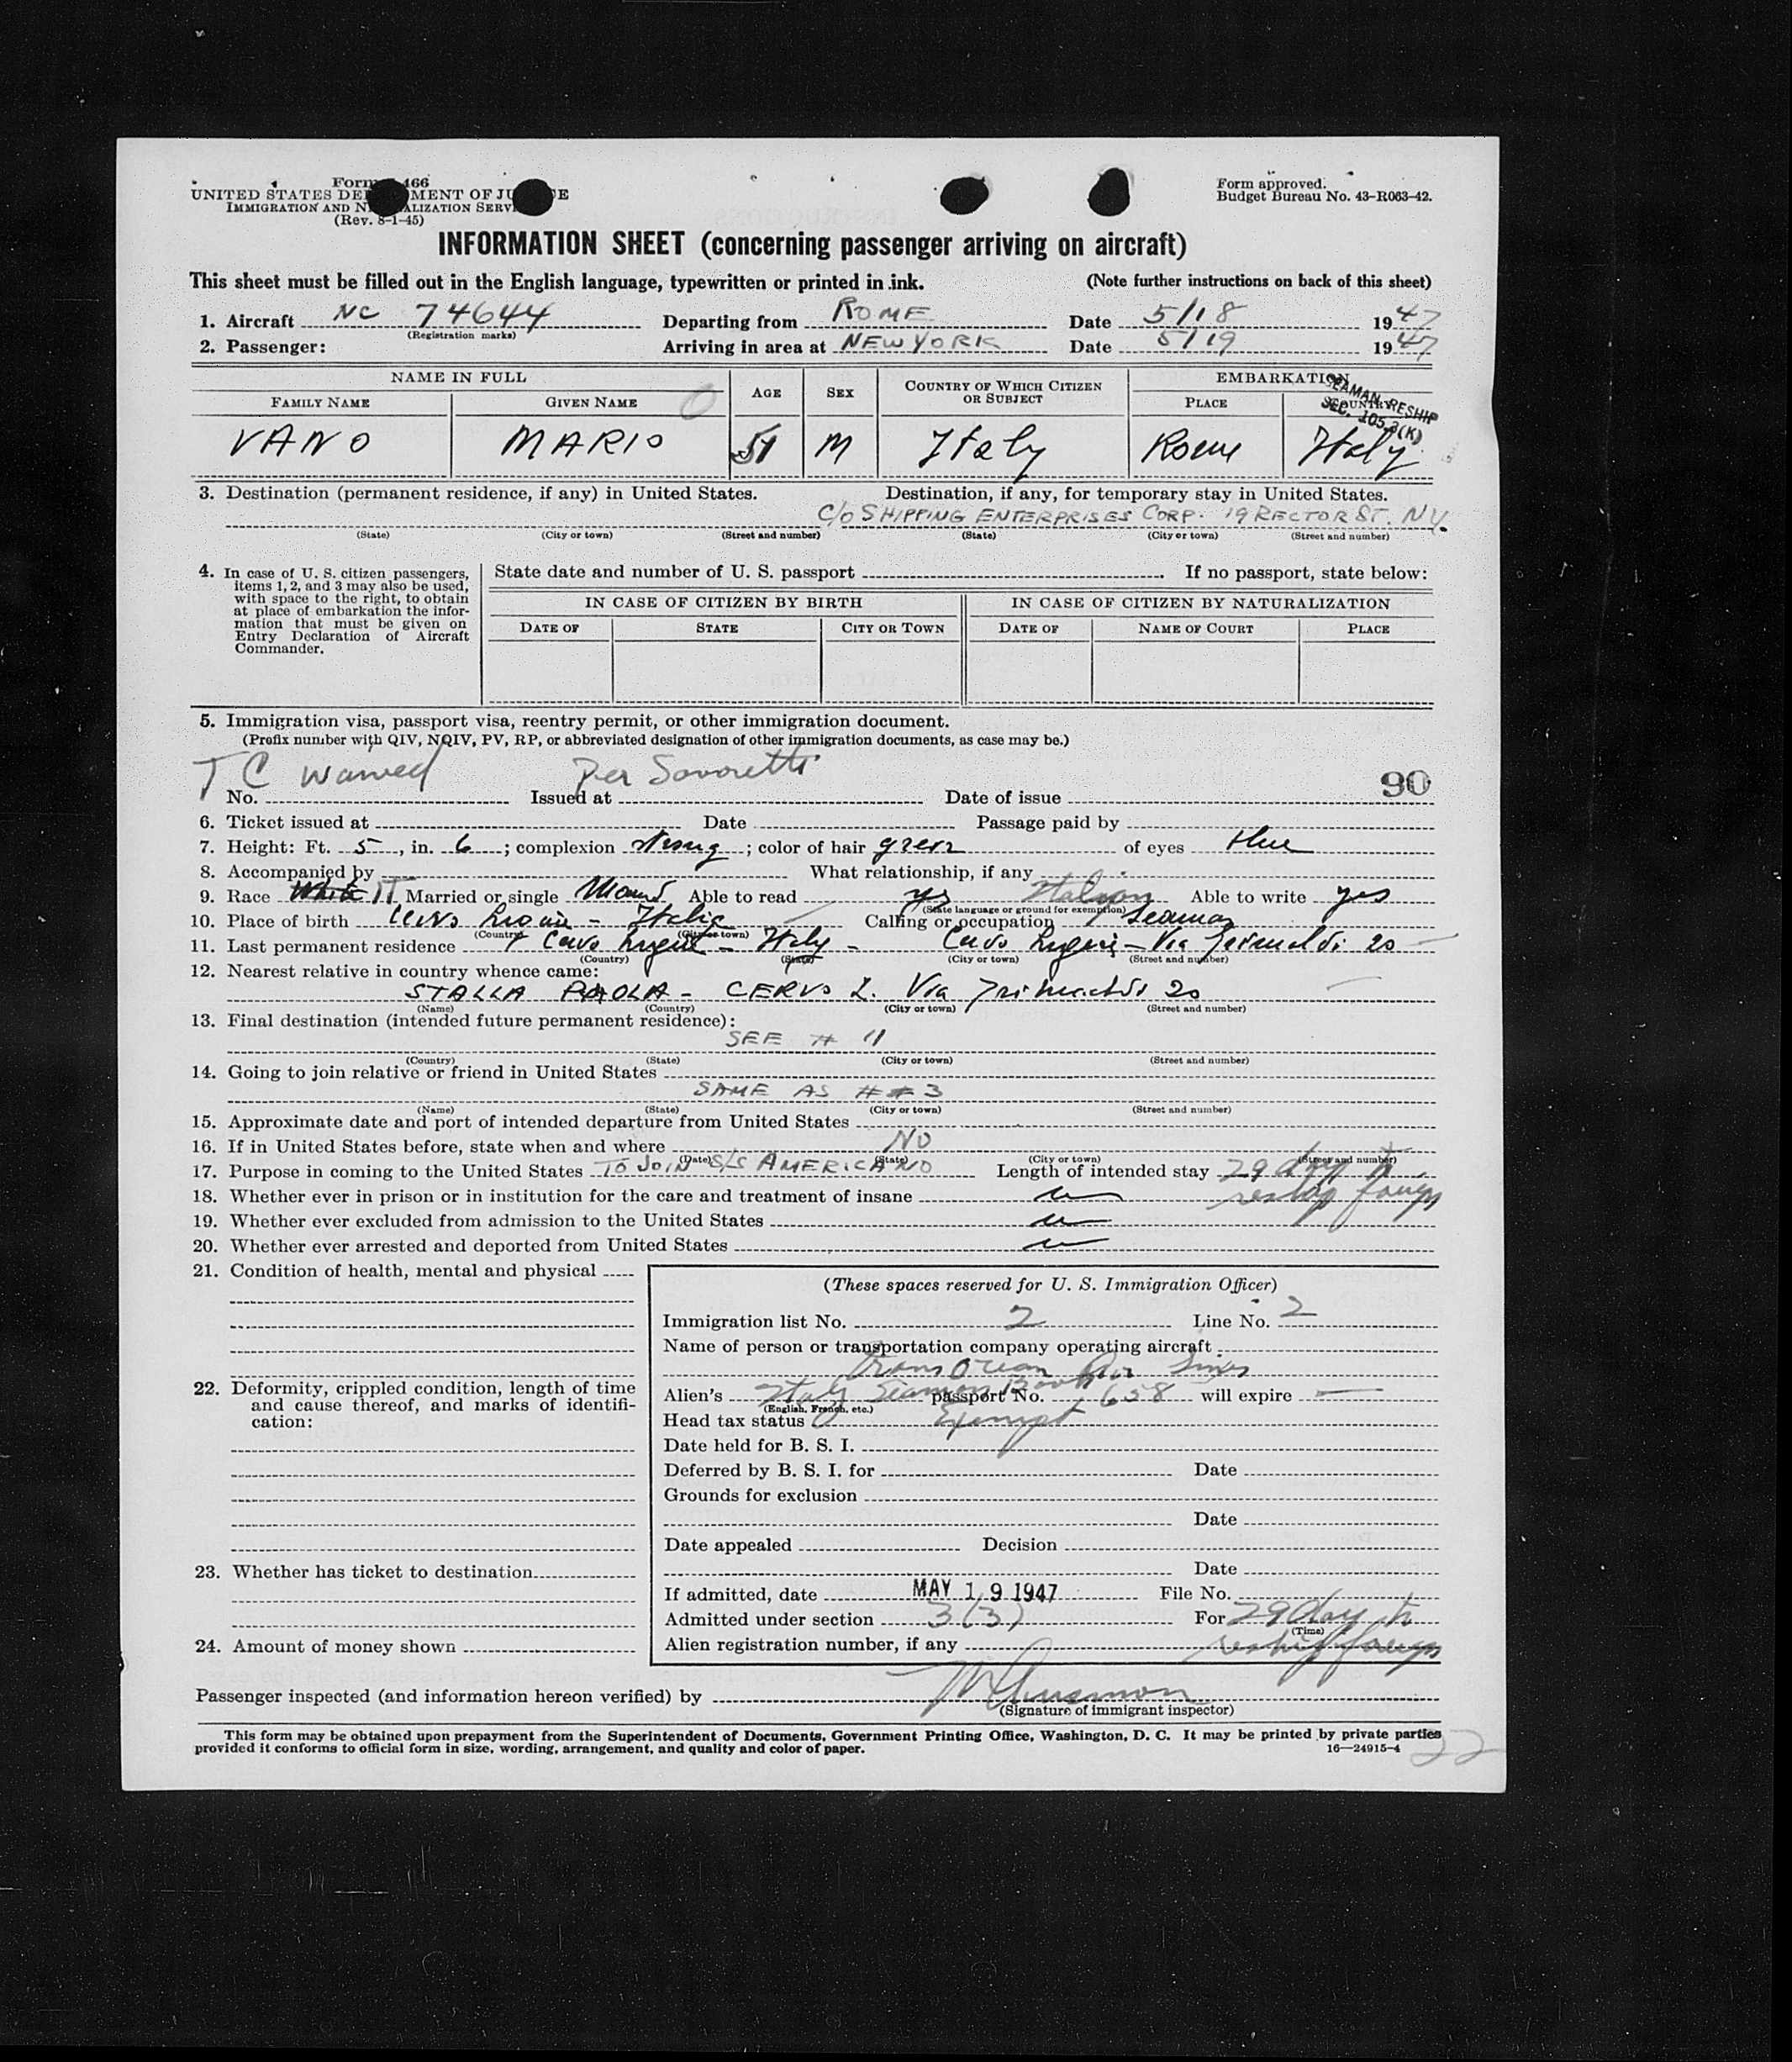 Form 466
UNITED STATES DE MENT OF JU E
IMMIGRATION AND N ALIZATION SERV
(Rev. 8-1-45)
Form approved.
Budget Bureau No. 43-R063-42.
INFORMATION SHEET (concerning passenger arriving on aircraft)
This sheet must be filled out in the English language, typewritten or printed in ink. (Note further instructions on back of this sheet)
1. Aircraft NC 74644 Departing from ROME Date 5/18 1947
(Registration marks)
2. Passenger: Arriving in area at NEW YORK Date 5/19 1947
NAME IN FULL AGE SEX COUNTRY OF WHICH CITIZEN OR SUBJECT EMBARKATION
FAMILY NAME GIVEN NAME PLACE COUNTRY
SEAMAN RESHIP
SEC. 105.3(K)
VANO MARIO 51 M Italy Rome Italy
3. Destination (permanent residence, if any) in United States. Destination, if any, for temporary stay in United States.
C/O SHIPPING ENTERPRISES CORP. 19 RECTOR ST. NY.
(State) (City or town) (Street and number) (State) (City or town) (Street and number)
4. In case of U. S. citizen passengers,
items 1, 2, and 3 may also be used,
with space to the right, to obtain
at place of embarkation the infor-
mation that must be given on
Entry Declaration of Aircraft
Commander.
State date and number of U. S. passport If no passport, state below:
IN CASE OF CITIZEN BY BIRTH IN CASE OF CITIZEN BY NATURALIZATION
DATE OF STATE CITY OR TOWN DATE OF NAME OF COURT PLACE
5. Immigration visa, passport visa, reentry permit, or other immigration document.
(Prefix number with QIV, NQIV, PV, RP, or abbreviated designation of other immigration documents, as case may be.)
T C Waived Per Savoretti 90
No. Issued at Date of issue
6. Ticket issued at Date Passage paid by
7. Height: Ft. 5, in. 6; complexion strong; color of hair of eyes blue
8. Accompanied by What relationship, if any
9. Race White IT Married or single Able to read yes Italian Able to write yes
(State language or ground for exemption)
10. Place of birth Cervo Italia Calling or occupation Seaman
(Country) (City or town)
11. Last permanent residence Cervo Italy - Cervo Via Grimaldi 20
(Country) (State) (City or town) (Street and number)
12. Nearest relative in country whence came:
STALLA PAOLA - CERVO L. Via Grimaldi 20
(Name) (Country) (City or town) (Street and number)
13. Final destination (intended future permanent residence):
SEE # 11
(Country) (State) (City or town) (Street and number)
14. Going to join relative or friend in United States
SAME AS # # 3
(Name) (State) (City or town) (Street and number)
15. Approximate date and port of intended departure from United States
16. If in United States before, state when and where NO
(Date) (State) (City or town) (Street and number)
17. Purpose in coming to the United States TO JOIN S/S AMERICANO Length of intended stay 29 day to
reship foreign
18. Whether ever in prison or in institution for the care and treatment of insane
19. Whether ever excluded from admission to the United States
20. Whether ever arrested and deported from United States
21. Condition of health, mental and physical
22. Deformity, crippled condition, length of time
and cause thereof, and marks of identifi-
cation:
23. Whether has ticket to destination
24. Amount of money shown
(These spaces reserved for U. S. Immigration Officer)
Immigration list No. 2 Line No. 2
Name of person or transportation company operating aircraft
Trans Ocean Air Lines
Alien's Italy Seamen Book passport No. 658 will expire
(English, French, etc.)
Head tax status Exempt
Date held for B. S. I.
Deferred by B. S. I. for Date
Grounds for exclusion
Date
Date appealed Decision
Date
If admitted, date MAY 19 1947 File No.
Admitted under section 3(3) For 29 day to
(Time)
Alien registration number, if any reship foreign
Passenger inspected (and information hereon verified) by
(Signature of immigrant inspector)
This form may be obtained upon prepayment from the Superintendent of Documents, Government Printing Office, Washington, D. C. It may be printed by private parties
provided it conforms to official form in size, wording, arrangement, and quality and color of paper. 16—24915-4
22